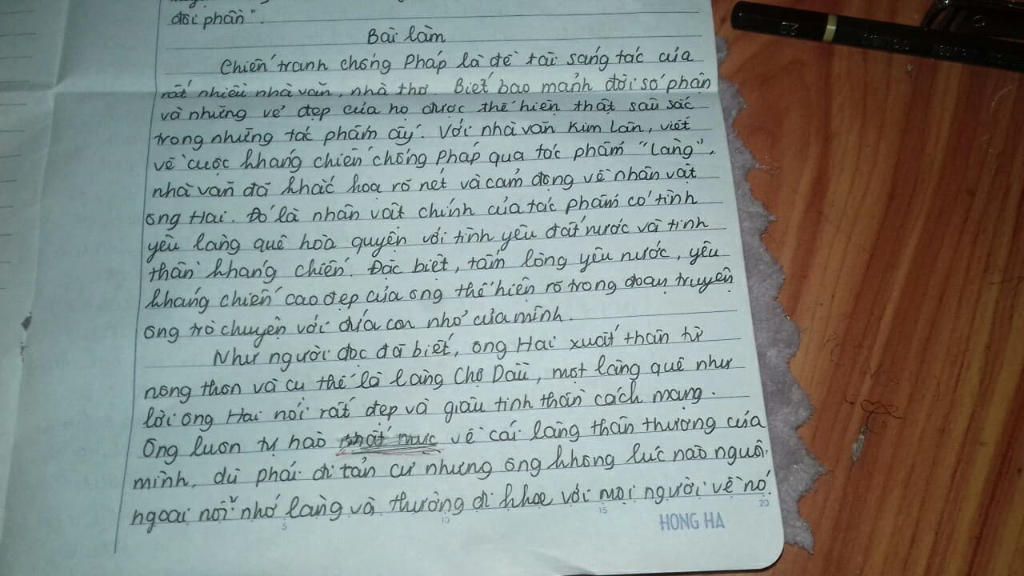 độc phần".
Bài làm
Chiến tranh chống Pháp là đề tài sáng tác của
rất nhiều nhà văn, nhà thơ. Biết bao mảnh đời số phận
và những vẻ đẹp của họ được thể hiện thật sâu sắc
trong những tác phẩm ấy. Với nhà văn Kim Lân, viết
về cuộc kháng chiến chống Pháp qua tác phẩm "Làng",
nhà văn đã khắc họa rõ nét và cảm động về nhân vật
ông Hai. Đó là nhân vật chính của tác phẩm có tình
yêu làng quê hòa quyện với tình yêu đất nước và tinh
thần kháng chiến. Đặc biệt, tấm lòng yêu nước, yêu
kháng chiến cao đẹp của ông thể hiện rõ trong đoạn truyện
ông trò chuyện với đứa con nhỏ của mình.
Như người đọc đã biết, ông Hai xuất thân từ
nông thôn và cụ thể là làng Chợ Dầu, một làng quê như
lời ông Hai nói rất đẹp và giàu tinh thần cách mạng.
Ông luôn tự hào về cái làng thân thương của
mình, dù phải đi tản cư nhưng ông không lúc nào nguôi
ngoai nỗi nhớ làng và thường đi khoe với mọi người về nó.
5 10 15 20
HONG HA